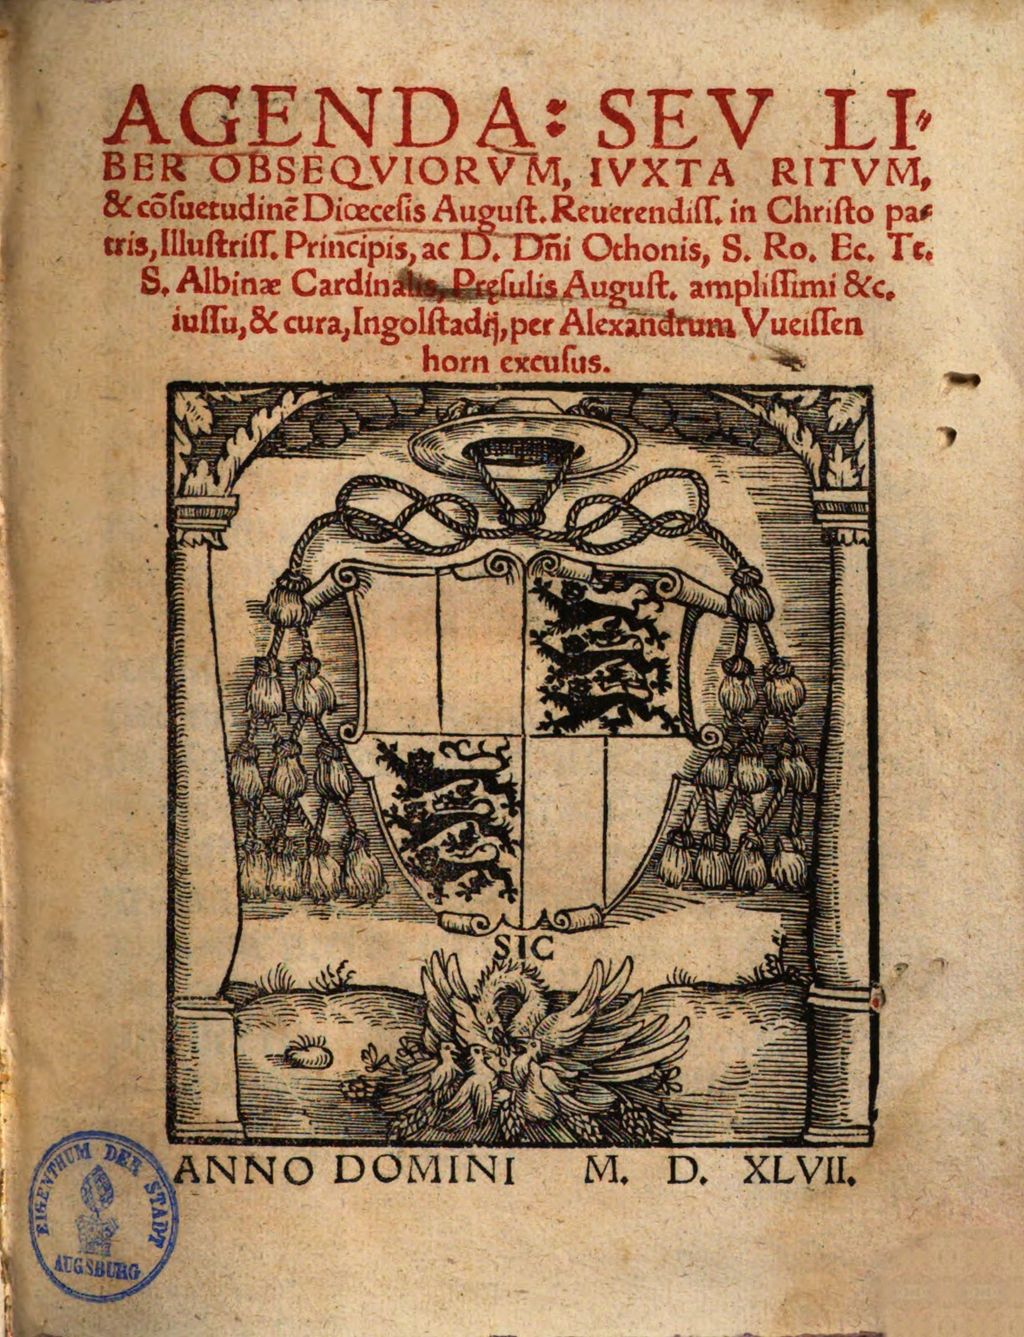 AGENDA: SEV LI⸗
BER OBSEQVIORVM, IVXTA RITVM,
& cõſuetudinẽ Diœceſis Auguſt. Reuerendiſſ. in Chriſto pa⸗
tris, Illuſtriſſ. Principis, ac D. Dñi Othonis, S. Ro. Ec. Tt.
S. Albinæ Cardinalis, Pręſulis Auguſt. ampliſſimi &c.
iuſſu, & cura, Ingolſtadij, per Alexandrum Vueiſſen
horn excuſus.
SIC
ANNO DOMINI M. D. XLVII.
EIGENTHUM DER STADT
AUGSBURG